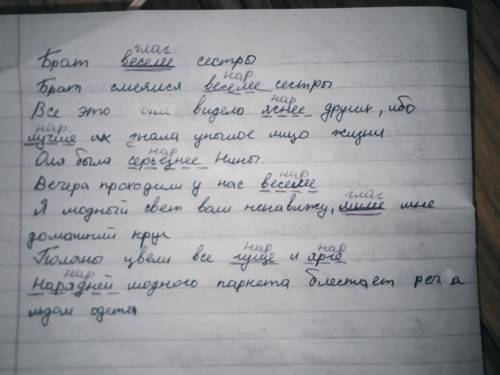 глаг.
Брат веселее сестры
нар
Брат смеялся веселее сестры
нар
Все это она видело яснее других, ибо
нар
лучше их знала унылое лицо жизни
нар
Оля была серьезнее Нины
нар
Вечера проходим у нас веселее
глаг
Я модный свет ваш ненавижу, милее мне
домашний круг
нар нар
Поляны цвели все гуще и ярче
нар
Нарядней модного паркета блестает реч а
льдом одета